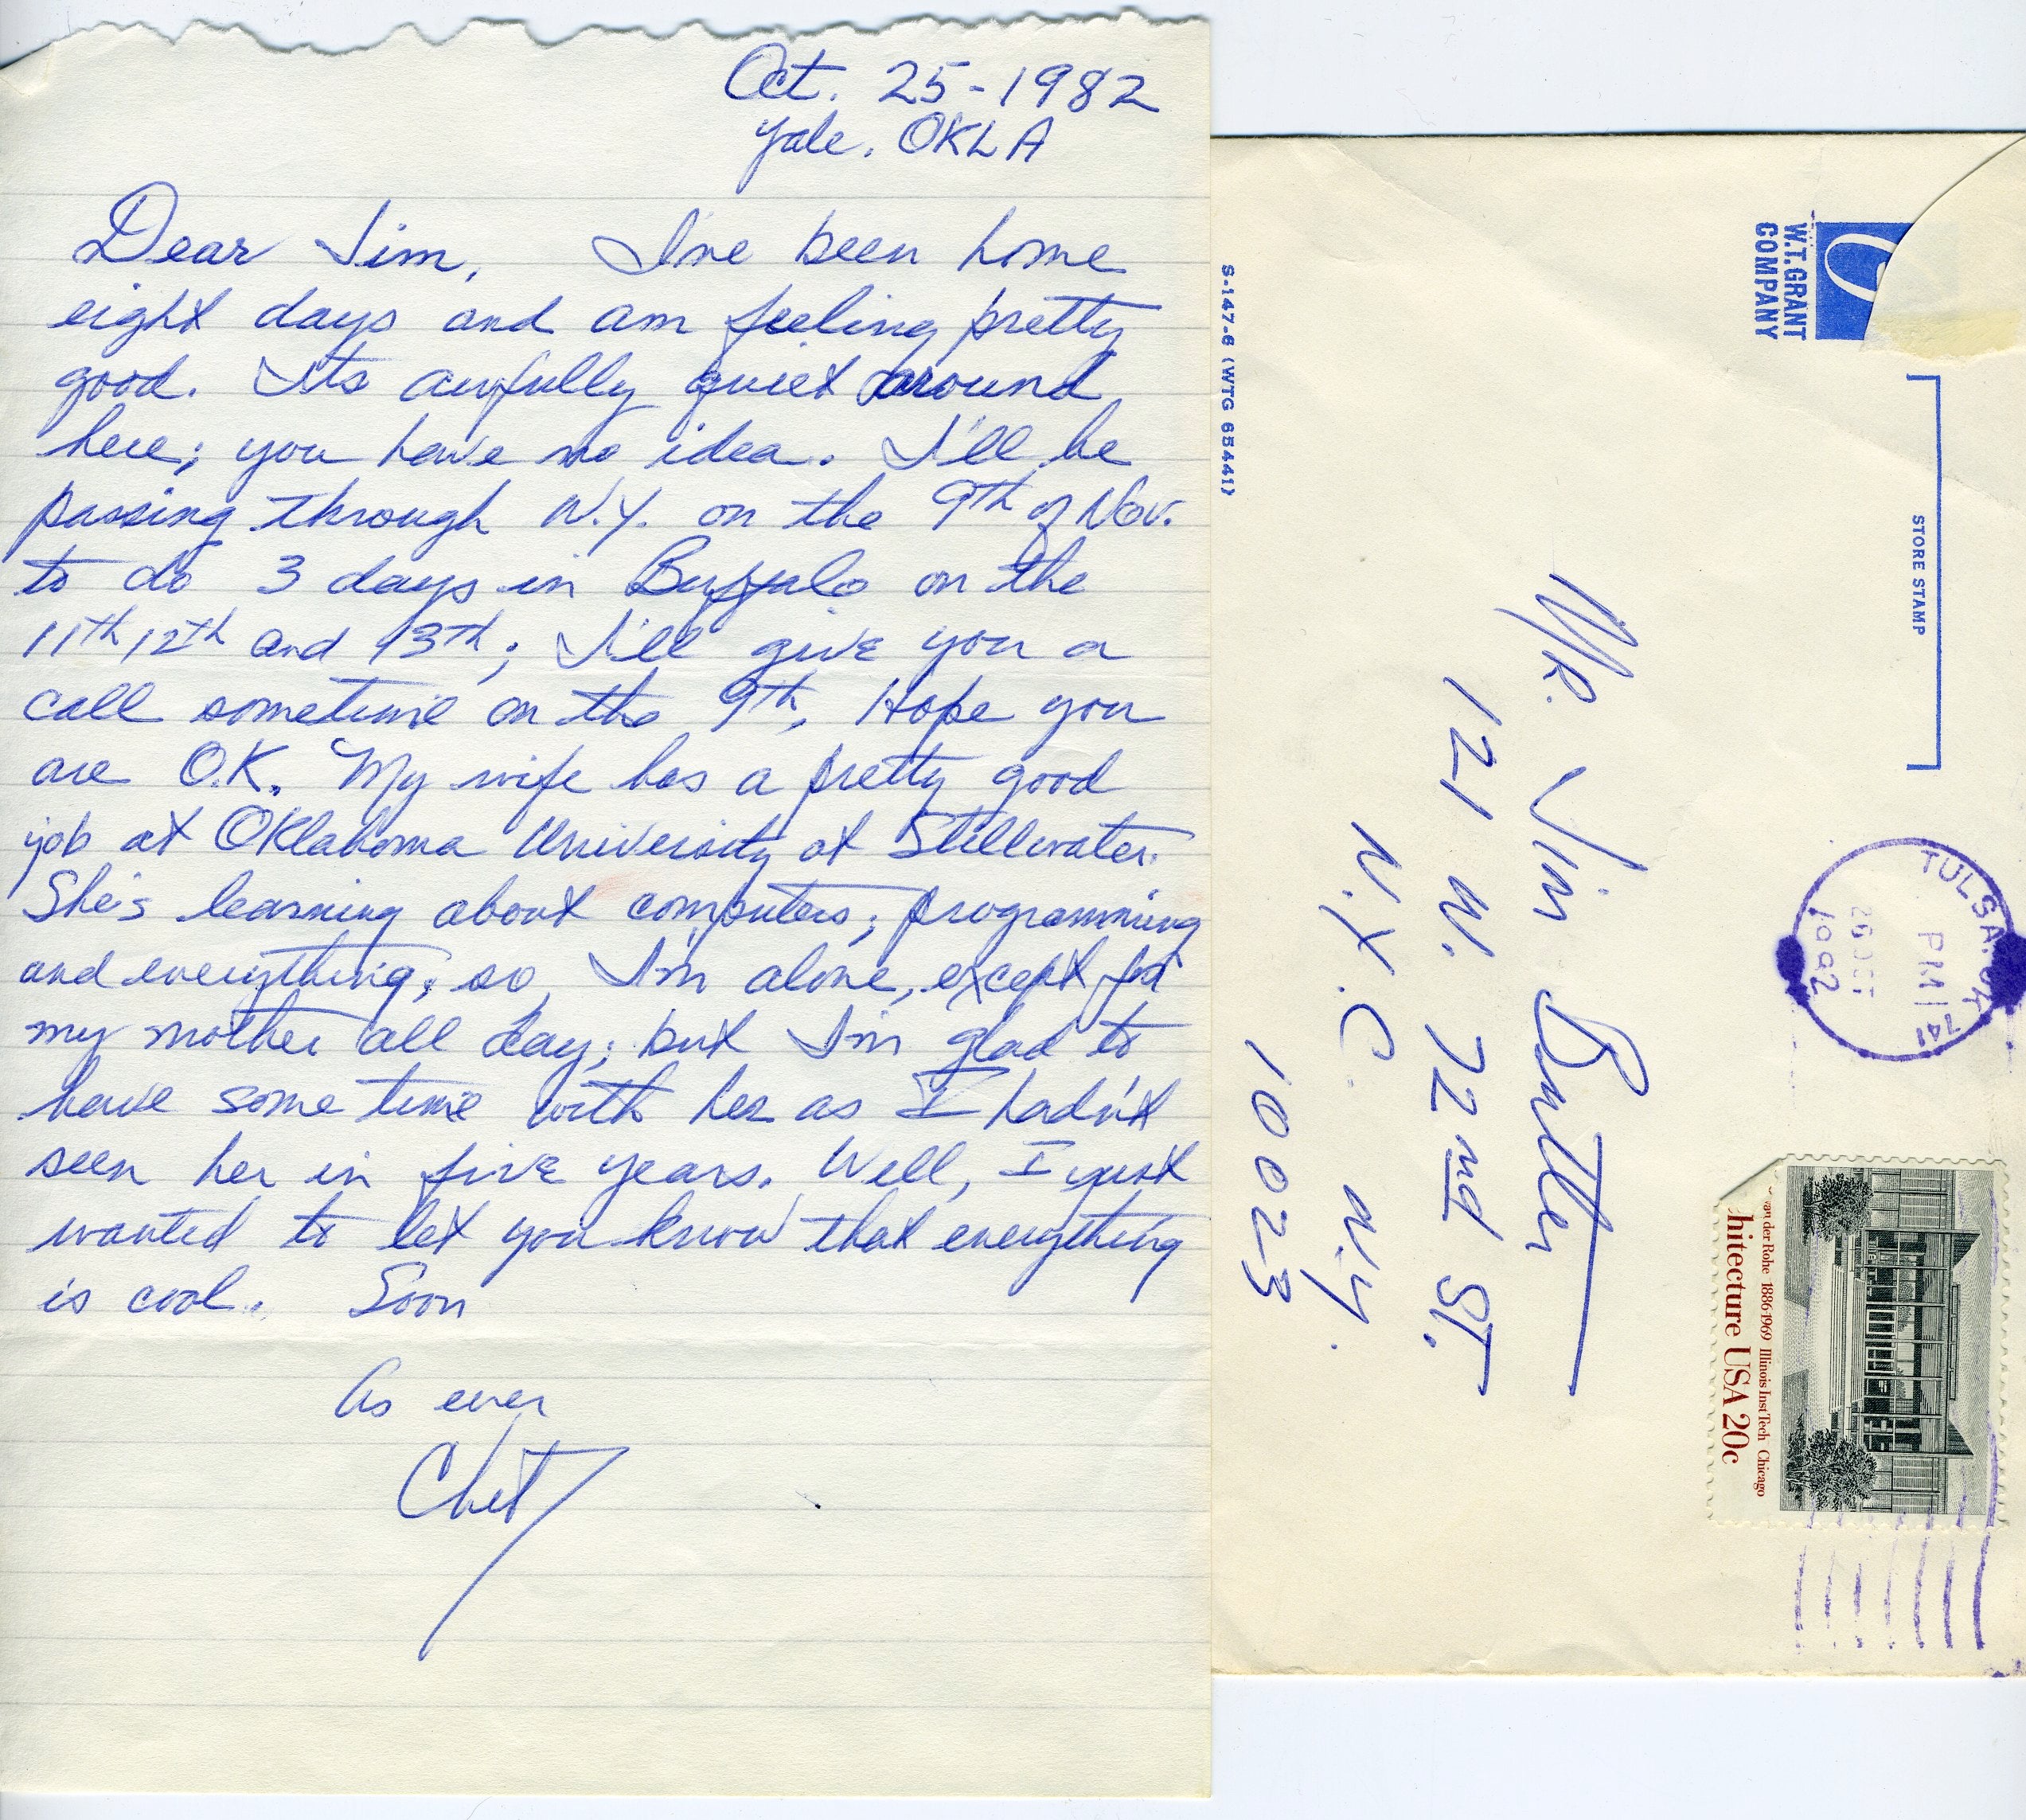 Oct. 25-1982
Yale. OKLA
Dear Jim, I've been home
eight days and am feeling pretty
good. Its awfully quiet around
here; you have no idea. I'll be
passing through N.Y. on the 9th of Nov.
to do 3 days in Buffalo on the
11th 12th and 13th; I'll give you a
call sometime on the 9th. Hope you
are O.K. My wife has a pretty good
job at Oklahoma University at Stillwater.
She's learning about computers; programming
and everything; so, I'm alone, except for
my mother all day; but I'm glad to
have some time with her as I hadn't
seen her in five years. Well, I just
wanted to let you know that everything
is cool. Soon
As ever
Chet
W.T. GRANT
COMPANY
S-147-6 (WTG 65441)
STORE STAMP
TULSA, OK
PM 741
26 OCT
1982
van der Rohe 1886-1969 Illinois Inst Tech Chicago
hitecture USA 20c
Mr. Jim Butler
121 W. 72nd ST.
N.Y.C. N.Y.
10023